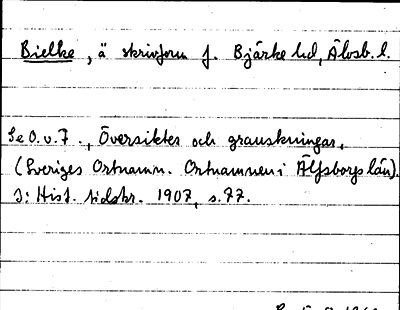 Bielke, ä skrivform f. Bjärke hd, Älvsb. l.
Se O. v. F., Översikter och granskningar,
(Sveriges Ortnamn. Ortnamnen i Älfsborgs län).
I: Hist. tidskr. 1907, s. 77.